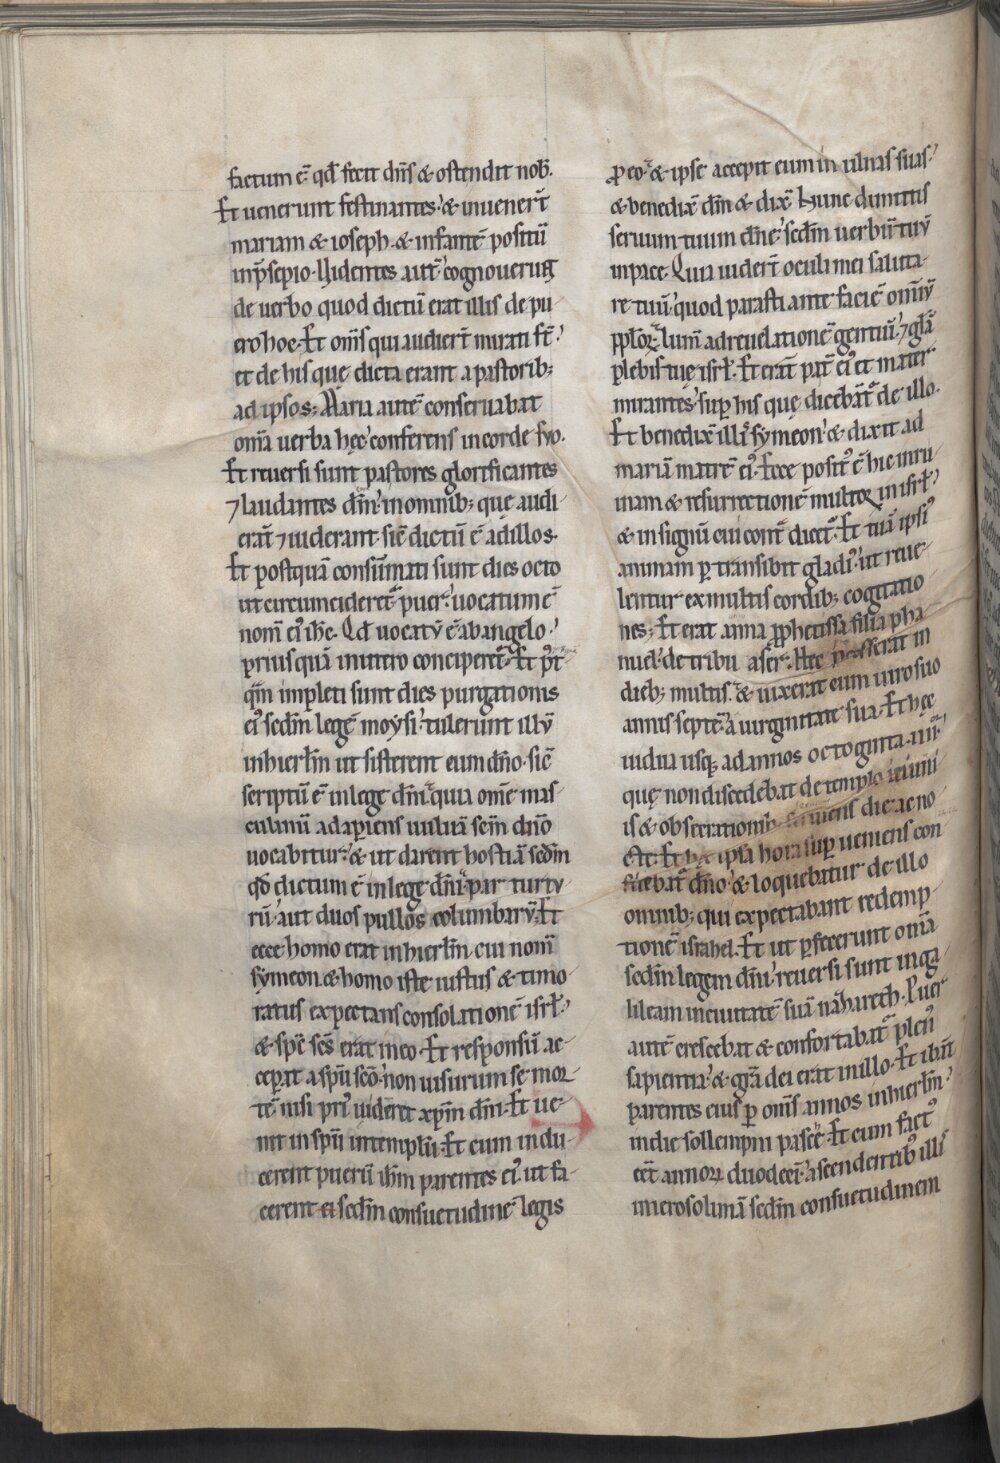 factum ē qđ fecit dn̄s & ostendit nob̄.
Et uenerunt festinantes. & inuener̄t
mariam & ioseph. & infantē positū
inp̄sepio. Uidentes aut̄ cognouerunt
de uerbo quod dictū erat illis de pu
ero hoc. Et om̄s qui audier̄t mirati st̄.
et de his quę dicta erant a pastorib;
ad ipsos; Maria autē conseruabat
om̄a uerba hęc conferens incorde suo.
Et reuersi sunt pastores glorificantes
⁊ laudantes dm̄. inomnib; quę audi
erāt ⁊ uiderant sic̄ dictū ē adillos.
Et postquā consūmati sunt dies octo
ut circumcideret᷑ puer. uocatum ē
nom̄ eiꝰ ih̄c. Qđ uocatū ē abangelo.
priusquā inutero conciperet᷑. Et pꝰt
qm̄ impleti sunt dies purgationis
eiꝰ sed̄m legē moysi. tulerunt illū
inhierl̄m ut sisterent eum dn̄o. sic̄
scriptū ē inlege dn̄i. quia om̄e mas
culinū adaperiens uuluā sc̄m dn̄o
uocabitur. & ut darent hostiā sed̄m
qđ dictum ē inlege dn̄i. par turtu
rū. aut duos pullos columbarū. Et
ecce homo erat inhierl̄m. cui nom̄
symeon. & homo iste iustus & timo
ratus expectans consolationē isrl̄.
& sp̄c sc̄s erat ineo. Et responsū ac
ceperat a sp̄u sc̄o. non uisurum se mor
tē. nisi priꝰ uideret xp̄m dn̄i. Et ue
nit in sp̄u intemplū. Et cum indu
cerent puerū ih̄m parentes eiꝰ. ut fa
cerent ei sed̄m consuetudinē legis
ꝓ eo. & ipse accepit eum in ulnas suas.
& benedix̄ dm̄ & dix̄ Hunc dimittis
seruum tuum dn̄e. sed̄m uerbū tuū
inpace. Quia uider̄t oculi mei saluta
re tuū. quod parasti ante faciē om̄iū
pp̄lorꝝ. lum̄ adreuelationē gentiū. ⁊ gl̄ā
plebis tuę isrl̄. Et erāt pat̄ eiꝰ et mater
mirantes. sup̄ his quę dicebāt᷑ de illo.
Et benedix̄ illi symeon. & dixit ad
mariā matrē eiꝰ. Ecce positꝰ ē hic inru
inam & resurrectionē multoꝝ in isrl̄.
& insignū cui cont̄ dicet᷑. Et tuā ipsiꝰ
animam ꝑtransibit gladiꝰ. ut reue
lentur exmultis cordib; cogitatio
nes; Et erat anna ꝓphetissa filia pha
nuel. de tribu aser. Hęc ꝓcesserat in
dieb; multis. & uixerat cum uiro suo
annis septē a uirginitate sua. Et hęc
uidua usq; adannos octoginta .iiii.
quę nondiscedebat detemplo ieiuni
is & obsecrationib; seruiens die ac no
cte. Et hęc ipsa hora sup̄ueniens con
fitebat᷑ dn̄o. & loquebatur de illo
omnib; qui expectabant redemp
tionē israhel. Et ut ꝑfecerunt om̄a
sed̄m legem dn̄i. reuersi sunt inga
lileam inciuitatē suā nazareth. Puer
autē crescebat & confortabat᷑ plenꝰ
sapientia. & gr̄a dei erat inillo. Et ibāt
parentes eius ꝑ om̄s annos inhierl̄m.
indie sollempni paschē. Et cum factꝰ
eēt annorꝝ duodeci᷑. ascendentibꝰ illis
inierosolimā sed̄m consuetudinem